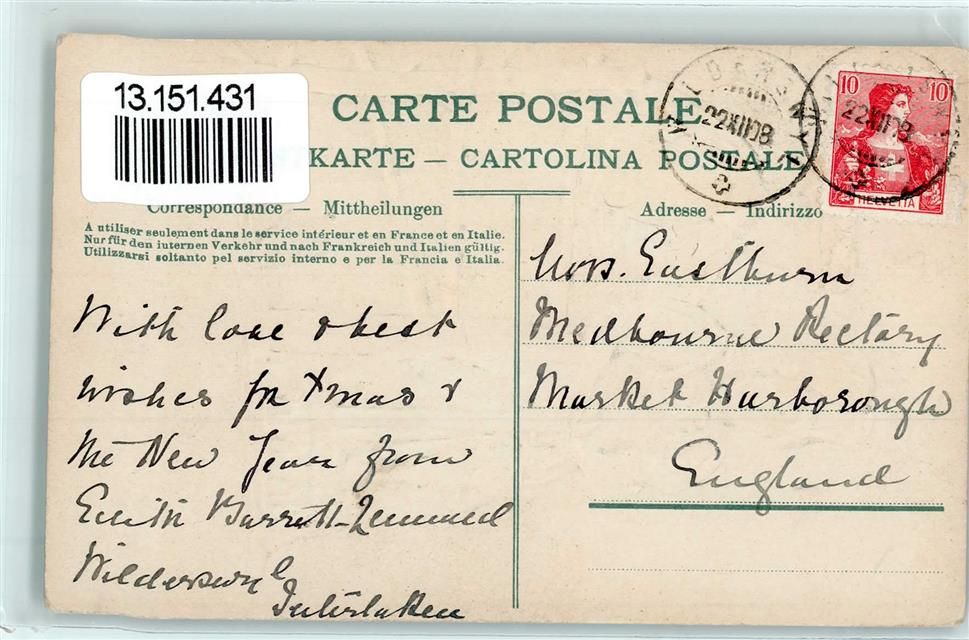 13.151.431
CARTE POSTALE
KARTE — CARTOLINA POSTALE
Correspondance — Mittheilungen
A utiliser seulement dans le service intérieur et en France et en Italie.
Nur für den internen Verkehr und nach Frankreich und Italien gültig.
Utilizzarsi soltanto pel servizio interno e per la Francia e Italia.
Adresse — Indirizzo
10 10
HELVETIA
22 XII 08
22 XII 08
With love & best
wishes for Xmas &
the New Year from
Edith Barrett-
Wilderswyl
Interlaken
Mrs. Easthurn
Medbourne Rectary
Market Harborough
England